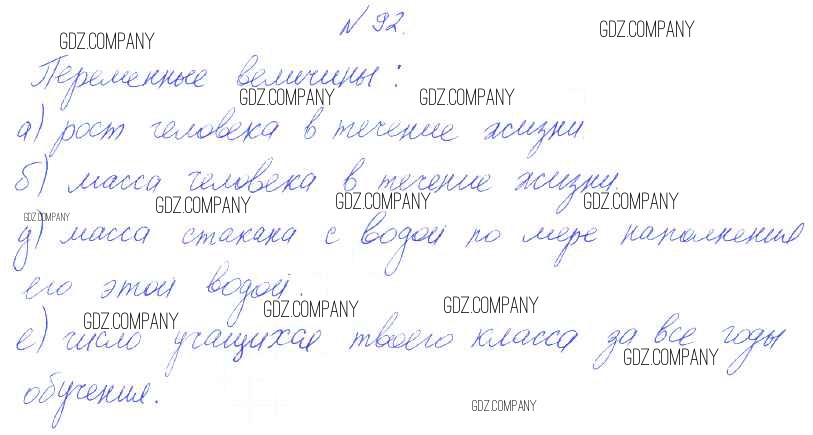 № 92.
GDZ.COMPANY GDZ.COMPANY
Переменные величины:
GDZ.COMPANY GDZ.COMPANY
а) рост человека в течение жизни
б) масса человека в течение жизни.
GDZ.COMPANY GDZ.COMPANY GDZ.COMPANY
GDZ.COMPANY
д) масса стакана с водой по мере наполнения
его этой водой.
GDZ.COMPANY GDZ.COMPANY GDZ.COMPANY
е) число учащихся твоего класса за все годы
GDZ.COMPANY
обучения.
GDZ.COMPANY